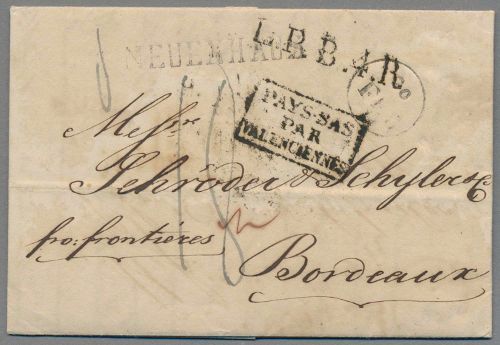 L.P.B.4.Ro
NEUENHAUS
PAYS-BAS
PAR
VALENCIENNES
Messrs
Schröder & Schyler & Co
fro: frontières
Bordeaux